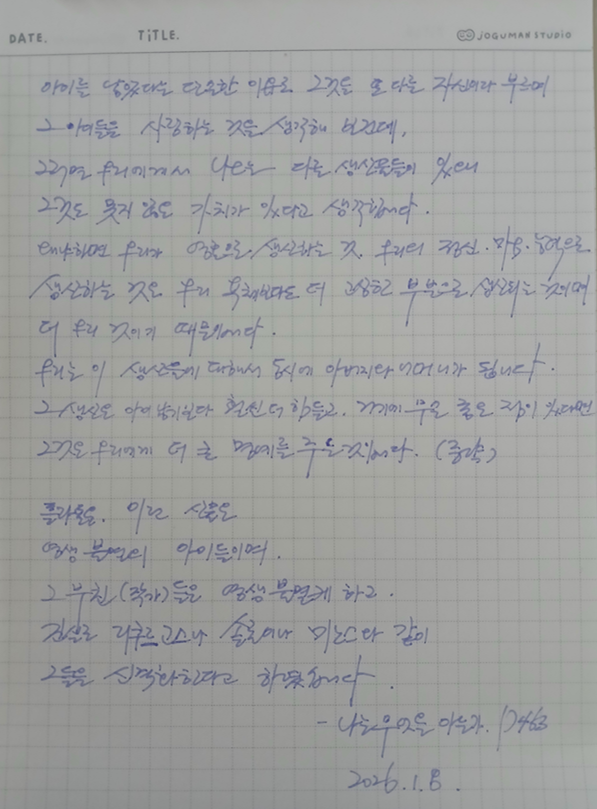 DATE. TiTLE. JOGUMAN STUDIO
아이를 낳았다는 단순한 이유로 그것을 또 다른 자신이라 부르며
그 아이들을 사랑하는 것을 생각해 보건대,
그러면 우리에게서 나오는 다른 생산물들이 있으니
그것도 못지 않은 가치가 있다고 생각합니다.
왜냐하면 우리가 영혼으로 생산하는 것, 우리의 정신·마음·능력으로
생산하는 것은 우리 육체보다도 더 고상한 부분으로 생산되는 것이며
더 우리 것이기 때문이다.
우리는 이 생산물에 대해서 동시에 아버지와 어머니가 됩니다.
그 생산은 아이 낳기보다 훨씬 더 힘들고, 거기에 무슨 좋은 점이 있다면
그것은 우리에게 더 큰 명예를 주는 것이다. (중략)
플라톤은, 이런 산물은
영생 불멸의 아이들이며,
그 부친(작가)들은 영생 불멸케 하고,
진실로 리쿠르고스나 솔론이나 미노스와 같이
그들을 신격화한다고 하였습니다.
- 나는 무엇을 아는가. P463
2026.1.8.